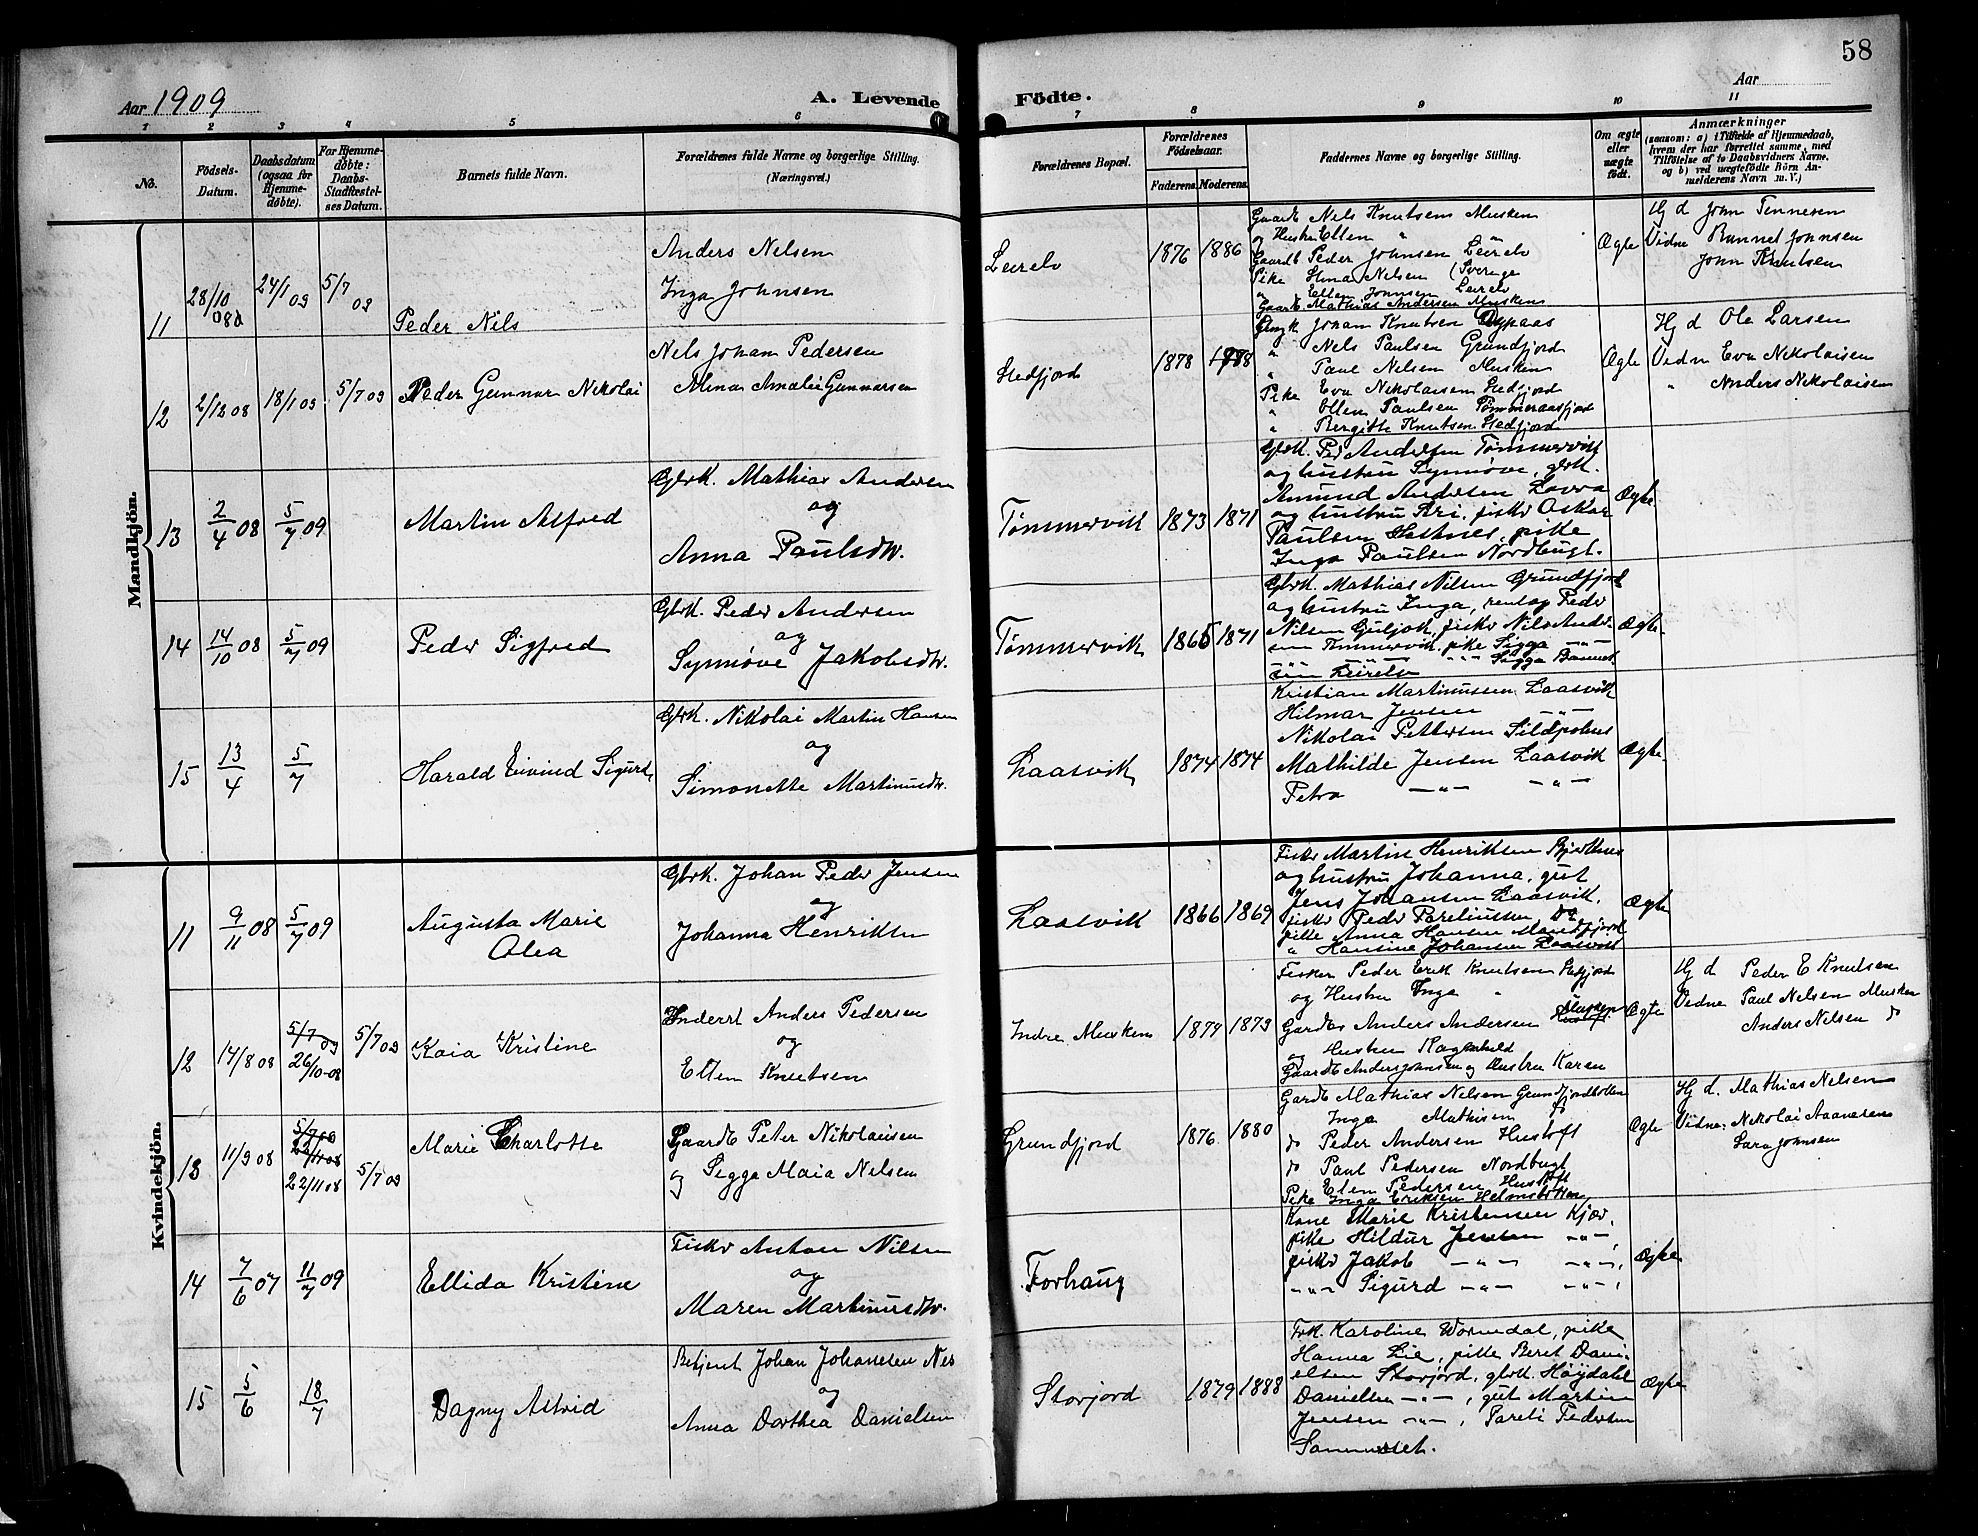 58
Aar 1909
A. Levende
Födte.
Aar
1 2 3 4 5 6 7 8 9 10 11
No.
Födsels-Datum.
Daabsdatum (ogsaa for Hjemme-døbte).
For Hjemme-døbte: Daabs-Stadfæstel-ses Datum.
Barnets fulde Navn.
Forældrenes fulde Navne og borgerlige Stilling. (Næringsvei.)
Forældrenes Bopæl.
Forældrenes Födselsaar.
Faderens. Moderens.
Faddernes Navne og borgerlige Stilling.
Om ægte eller uægte födt.
Anmærkninger
(saasom: a) i Tilfælde af Hjemmedaab, hvem der har forrettet samme, med Tilföielse af to Daabsvidners Navne, og b) ved uægtefödte Börn Anmelderens Navn m. V.)
Mandkjön.
11 28/10 08 24/1 09 5/7 09 Peder Nils
Anders Nelsen
Inga Johnsen
Leirelv 1876 1886
Gaardb Nels Knutsen Musken
og Hustru Ellen " "
Gaardb Peder Johnsen Leirelv
Pike Nelsen (Sverige
" Ellen Johnsen Leirelv
Gaardb Mathias Andersen Musken
Ægte
Hj d John Tennesen
Vidne Johnsen
John Knutsen
12 2/12 08 18/1 09 5/7 09 Peder Gunnar Nikolai
Nels Johan Pedersen
Amalie Gunnarsen
Stedfjord 1878 1888
Johan Knutsen
" Nels Paulsen Grundfjord
" Paul Nelsen Musken
Pike Eva Nikolaisen Stedfjord
" Ellen Paulsen
" Bergitte Knutsen Stedfjord
Ægte
Hj d Ole Larsen
Vidn Eva Nikolaisen
" Anders Nikolaisen
13 2/4 08 5/7 09 Martin Alfred
Gbrk. Mathias Andersen
og
Anna Paulsdtr.
Tømmervik 1873 1871
Gbrk. Ped Andersen Tømmervik
og hustru Synnøve, gbrk.
Amund Andersen
og hustru Bri. fisker Oskar
Paulsen pike
Inga Paulsen Nordbugt.
Ægte
14 14/10 08 5/7 09 Peder Sigfred
Gbrk. Peder Andersen
og
Synnøve Jakobsdtr.
Tømmervik 1865 1871
Gbrk. Mathias Nilsen Grundfjord
og hustru Inga, Peder
Nilsen fisker Nils Ander-
sen Tømmervik, pike Sigga
Sigga
Ægte
15 13/4 5/7 Harald Eivind Sigurd
Gbrk. Nikolai Martin Hansen
og
Simonette Martinusdtr.
Laasvik 1874 1874
Kristian Martinussen Laasvik
Hilmar Jensen -"-
Nikolai Pettersen Sildpolnes
Mathilde Jensen Laasvik
Petra -"- -"-
Ægte
Kvindekjön.
11 9/11 08 5/7 09 Augusta Marie
Olea
Gbrk. Johan Peder Jensen
og
Johanna Henriksen
Laasvik 1866 1869
Fisker Martin Henriksen
og hustru Johanna, gut
Jens Johansen Laasvik.
fisker Peder Pareliussen Do
pike Anna Hansen
" Hansine Johansen Laasvik
Ægte
12 14/8 08 5/7 09 26/10-08 5/7 09 Kaia Kristine
Inderst Anders Pedersen
og
Ellen Knutsen
Indre Musken 1879 1873
Fisker Peder Erik Knutsen Stedfjord
og Hustru Inga "
Gardbr Anders Andersen Musken
og Hustru Ragnhild
Gaardb Anders Jansen og Hustru Karen
Ægte
Hj d Peder E Knutsen
Vidne Paul Nelsen Musken
Anders Nelsen do
13 11/9 08 5/7 09 22/11 08 22/11 08 5/7 09 Marie Charlotte
Gaardb Peter Nikolaisen
og Sigga Maia Nelsen
Grundfjord 1876 1880
Gardb Mathias Nelsen Grundfjordbotten
Inga Mathisen do
do Peder Andersen Hustoft
do Paul Pedersen Nordbugt
Elen Pedersen Hustoft
Pike Inga Eriksen Helmsbotten
Ægte
Hj d. Mathias Nelsen
Vidne. Nikolai Aanesen
Sara Johnsen
14 7/6 07 11/7 09 Ellida Kristine
Fisker Anton Nilsen
og
Maren Martinusdtr.
Forhaug
Kone Marie Kristensen Kjær,
pike Hildur Jensen -"-,
fisker Jakob -"- -"-,
-"- Sigurd -"- -"-,
Ægte
15 5/6 18/7 Dagny Astrid
Betjent Johan Johansen Nes
og
Anna Dorthea Danielsen
Storjord 1879 1888
Frk. Karoline Wormdal, pike
Hanna Lie, pike Beret Dani-
elsen Storjord, gbrk. Høydahl
Danielsen -"-, gut Martin
Jensen -"-, Pareli Pedersen
Sommerset.
Ægte